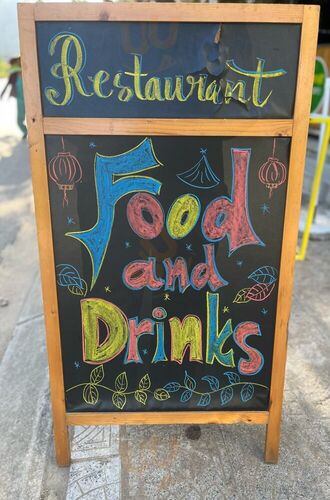 Restaurant
Food
and
Drinks